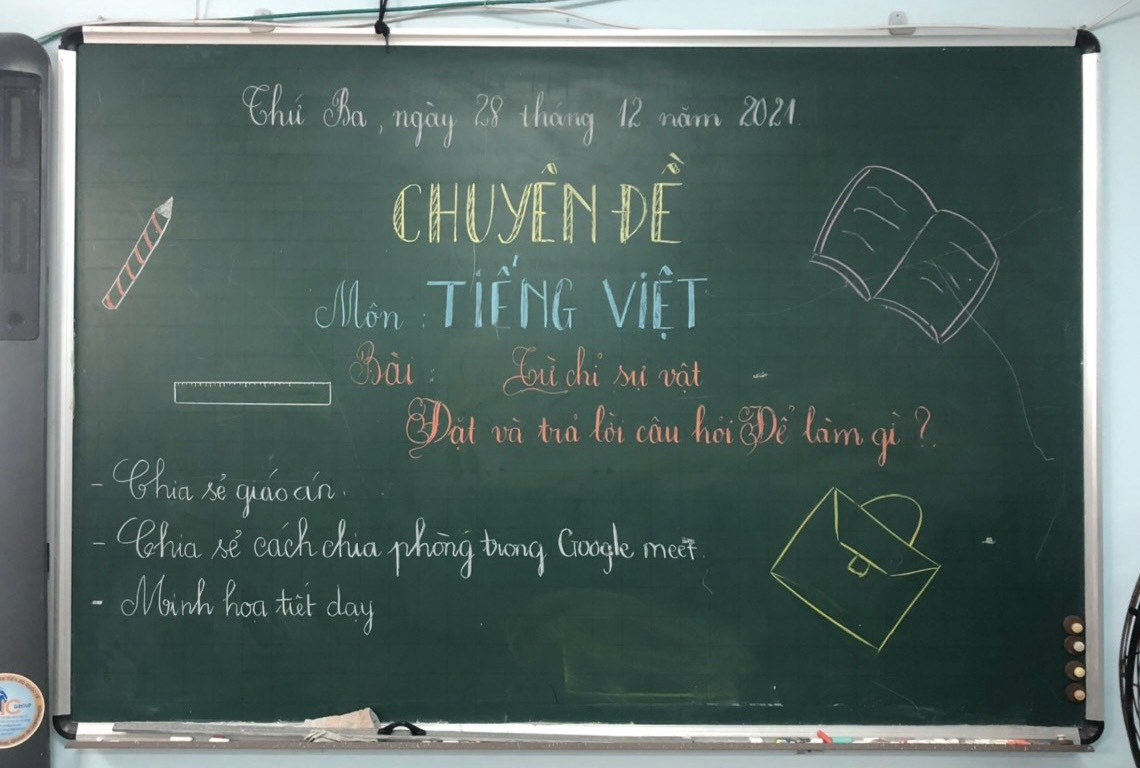 Thứ Ba, ngày 28 tháng 12 năm 2021.
CHUYÊN ĐỀ
Môn : TIẾNG VIỆT
Bài : Từ chỉ sự vật
Đặt và trả lời câu hỏi Để làm gì ?
- Chia sẻ giáo án.
- Chia sẻ cách chia phòng trong Google meet.
- Minh họa tiết dạy
GROUP